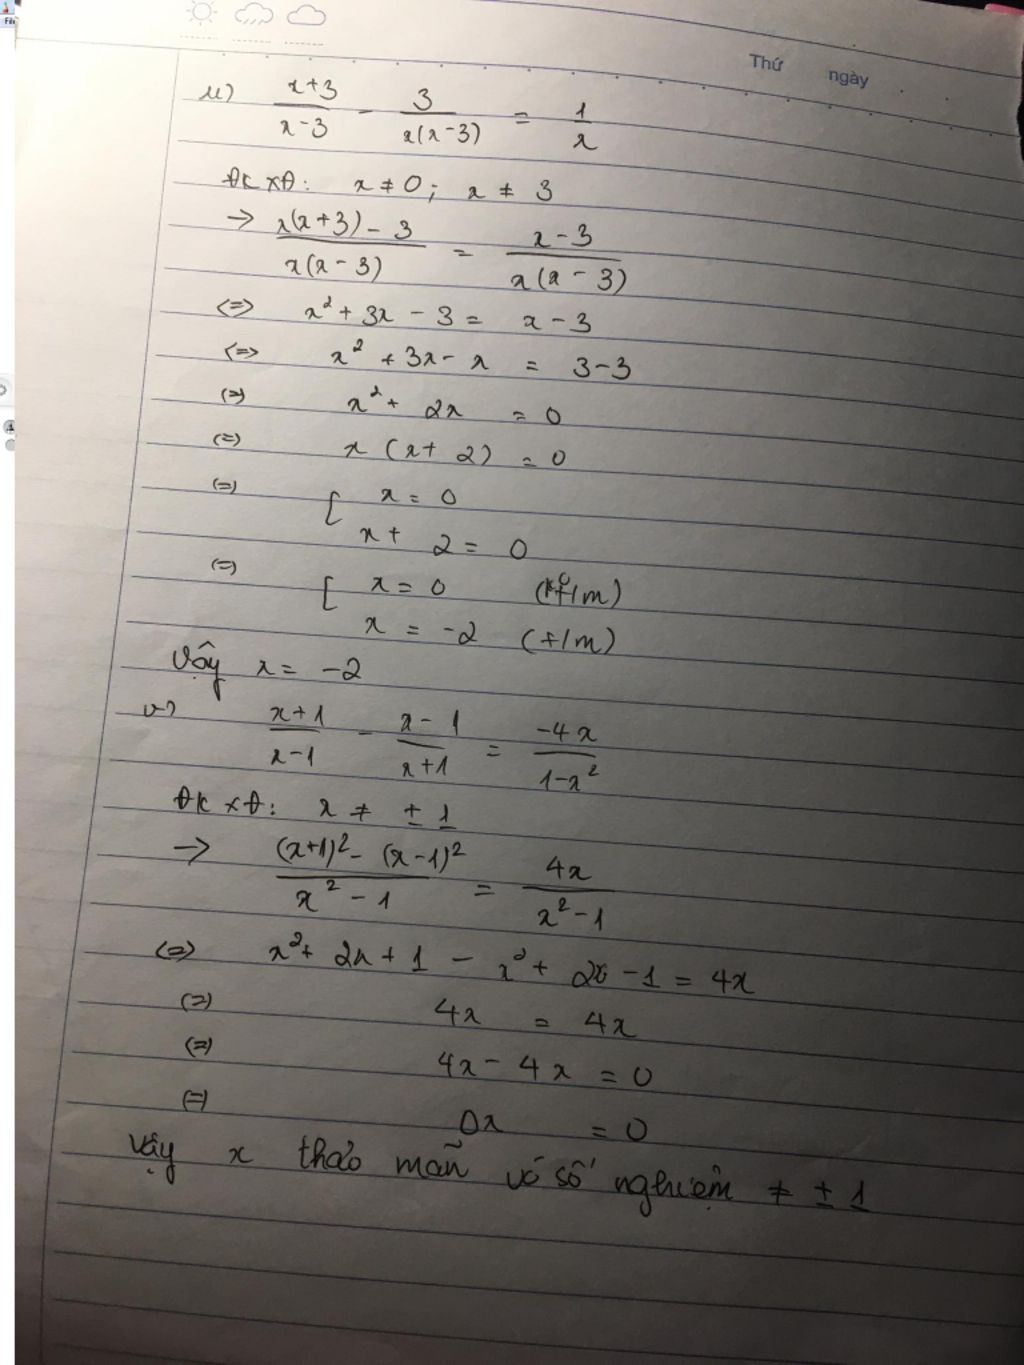 Thứ ngày
u) \frac{x+3}{x-3} - \frac{3}{x(x-3)} = \frac{1}{x}
ĐKXĐ: x ≠ 0; x ≠ 3
→ \frac{x(x+3)-3}{x(x-3)} = \frac{x-3}{x(x-3)}
<=> x² + 3x - 3 = x - 3
<=> x² + 3x - x = 3-3
(=) x² + 2x = 0
(=) x (x + 2) = 0
(=) [ x = 0
x + 2 = 0
(=) [ x = 0 (ko t/m)
x = -2 (t/m)
Vậy x = -2
v) \frac{x+1}{x-1} - \frac{x-1}{x+1} = \frac{-4x}{1-x²}
ĐKXĐ: x ≠ ± 1
→ \frac{(x+1)² - (x-1)²}{x²-1} = \frac{4x}{x²-1}
(=) x² + 2x + 1 - x² + 2x - 1 = 4x
(=) 4x = 4x
(=) 4x - 4x = 0
(=) 0x = 0
Vậy x thảo mãn vô số nghiệm ≠ ± 1